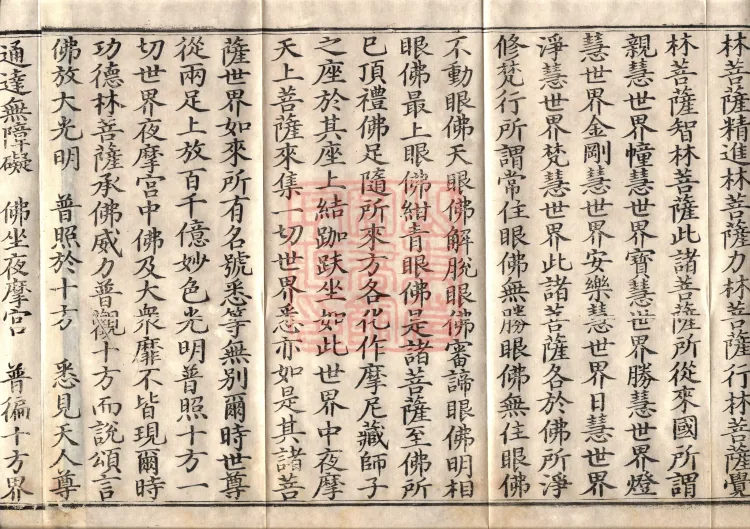 林菩薩精進林菩薩力林菩薩行林菩薩覺
林菩薩智林菩薩此諸菩薩所從來國所謂
親慧世界幢慧世界寶慧世界勝慧世界燈
慧世界金剛慧世界安樂慧世界日慧世界
淨慧世界梵慧世界此諸菩薩各於佛所淨
修梵行所謂常住眼佛無勝眼佛無住眼佛
不動眼佛天眼佛解脫眼佛審諦眼佛明相
眼佛最上眼佛紺青眼佛是諸菩薩至佛所
已頂禮佛足隨所來方各化作摩尼藏師子
之座於其座上結跏趺坐如此世界中夜摩
天上菩薩來集一切世界悉亦如是其諸菩
薩世界如來所有名號悉等無別爾時世尊
從兩足上放百千億妙色光明普照十方一
切世界夜摩宮中佛及大眾靡不皆現爾時
功德林菩薩承佛威力普觀十方而說頌言
佛放大光明　普照於十方　悉見天人尊
通達無障礙　佛坐夜摩宮　普徧十方界